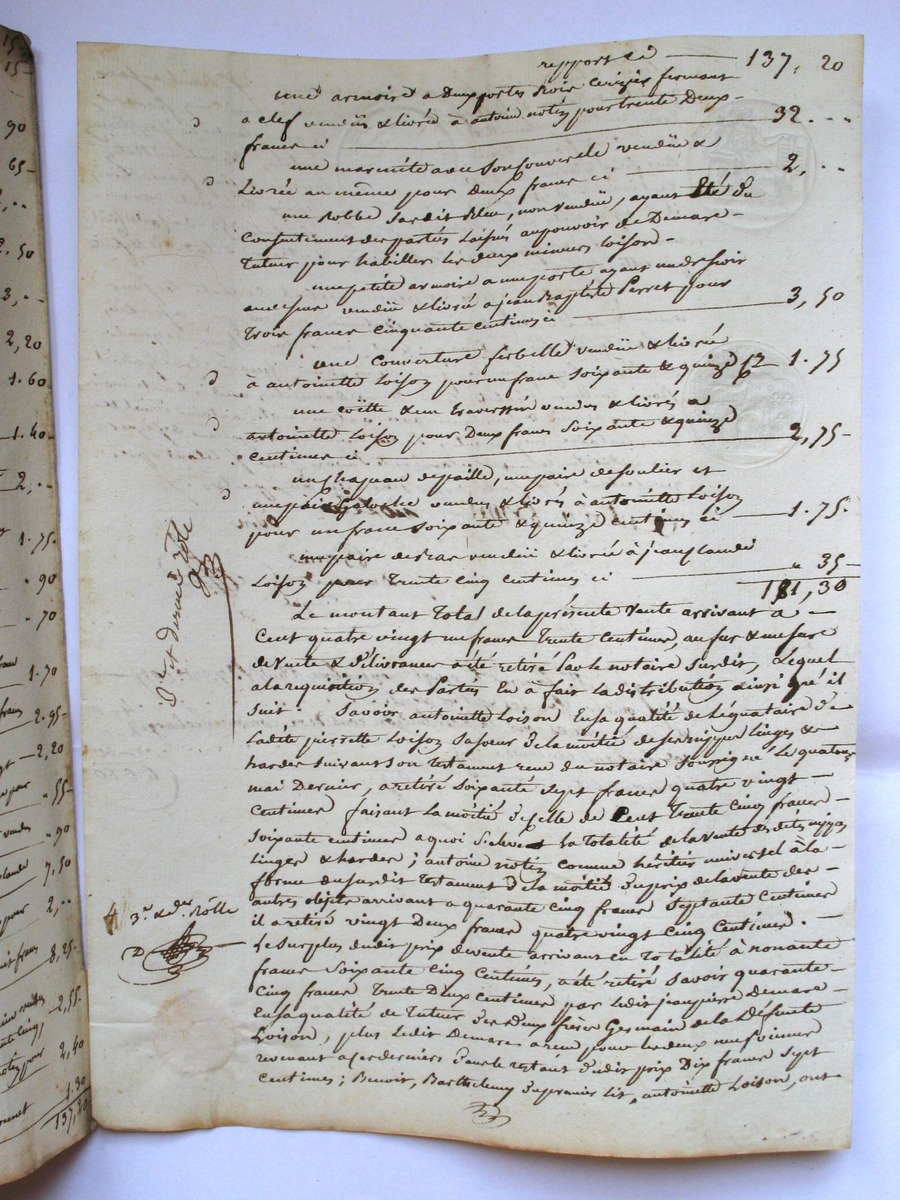 report ci — 137, 20
une armoire a Deux portes Noir Cerizier fermant
a clef vendüe & livrée à antoine notéz pour trente Deux
francs ci — 32. - -
une marmite avec Son Couvercle vendüe &
Livrée au même pour deux francs ci — 2, - -
une Robbe Sardit Bleu, non vendüe, ayant Eté du
Consentement des parties Laissés au pouvoir de Demare -
Tuteur pour habiller les deux mineurs Loison -
une petite armoire a une porte ayant un dressoir
vendüe & livrée a jean Baptiste Perret pour
Trois francs Cinquante centimes ci — 3, 50
une Couverture vendüe & livrée
à antoinette Loison pour un franc Soixante & quinze — 1. 75
une coëtte & un traversin vendus & livrés a
antoinette Loison pour Deux francs Soixante & quinze
Centimes ci — 2, 75-
un chapeau de paille, une paire de Soulier et
une paire Galoche vendus & livrés à antoinette Loison
pour un franc Soixante & quinze Centimes ci — 1. 75.
une paire de Bas vendüe & livrée à jean
Loison pour Trente Cinq Centimes ci — " 35-
181, 30
Le montant Total de la présente Vente arrivant a -
Cent quatre vingt un francs Trente Centimes, au fur & mesure
de & Délivrances a été retiré Par le notaire Susdit, Lequel
a la requisition des Parties En a fait La distribution ainsi qu'il
Suit. Savoir antoinette Loison En Sa qualité de Léguataire de
Ladite pierrette Loison Sa Soeur de la moitié de Ses nippes Linges &
hardes Suivant Son Testament reçu du notaire Soussigné Le quatorze
mai Dernier, a retiré Soixante Sept francs quatre vingt -
Centimes faisant La moitié de Celle de Cent Trente Cinq francs -
Soixante centimes a quoi S'eleve la Totalité de la vente des dites nippes
Linges & hardes ; antoine notéz comme héritier universel à la -
forme du Susdit Testament De la moitié du prix de la vente des -
autres objets arrivant a quarante Cinq francs Septante Centimes
il a retiré vingt Deux francs quatre vingt Cinq Centimes. -
Le Surplus dudit prix de vente arrivant en Totalité à nonante
francs Soixante Cinq Centimes, a été retiré Savoir quarante
Cinq francs Trente Deux Centimes par Ledit jean pierre Demare -
En Sa qualité de Tuteur des deux frères Germain de la Défunte
Loison, plus Ledit Demare a reçu pour les deux
revenant a Ses derniers dans le restant dudit prix Dix francs Sept
Centimes ; Benoit, Barthelemy du premier Lit, antoinette Loison, ont
3e. et dernier rôle
3e. & der. Rôlle
15-
15-
90
65-
2. 50
3, -
2, 20
1. 60
1. 40
2, --
1. 75
90
70
1. 70
2. 95-
2, 20
" 55-
" 90
7, 50
2, --
8, 25.
2, 55.
2, 40
1. 30
137, 20